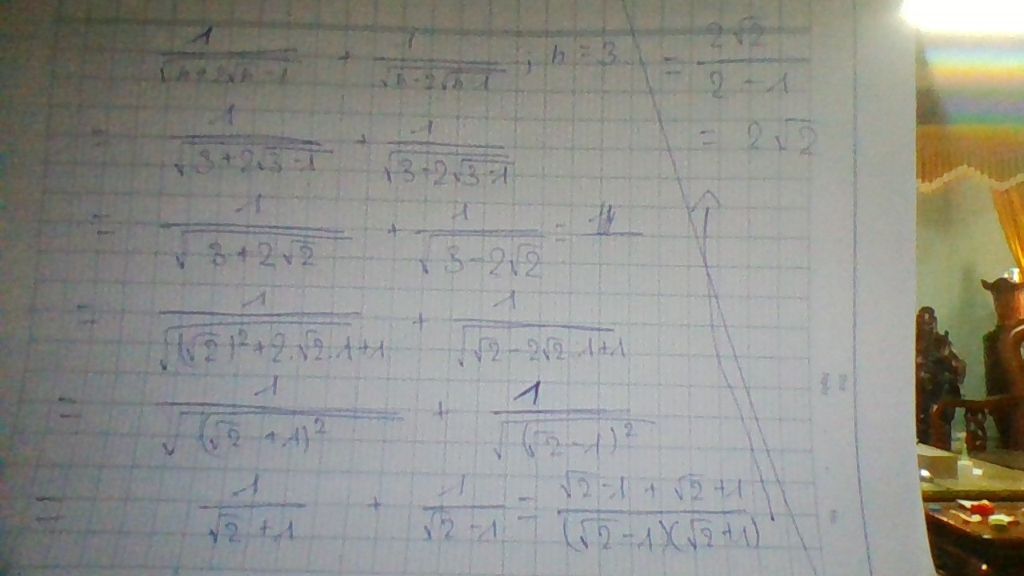 1/√(h+2√(h-1)) + 1/√(h-2√(h-1)) ; h = 3
= 1/√(3+2√(3-1)) + 1/√(3+2√(3-1))
= 1/√(3+2√2) + 1/√(3-2√2) =
= 1/√((√2)²+2.√2.1+1) + 1/√(√2-2√2.1+1)
= 1/√((√2+1)²) + 1/√((√2-1)²)
= 1/(√2+1) + 1/(√2-1) = (√2-1+√2+1)/((√2-1)(√2+1))
= 2√2/(2-1)
= 2√2